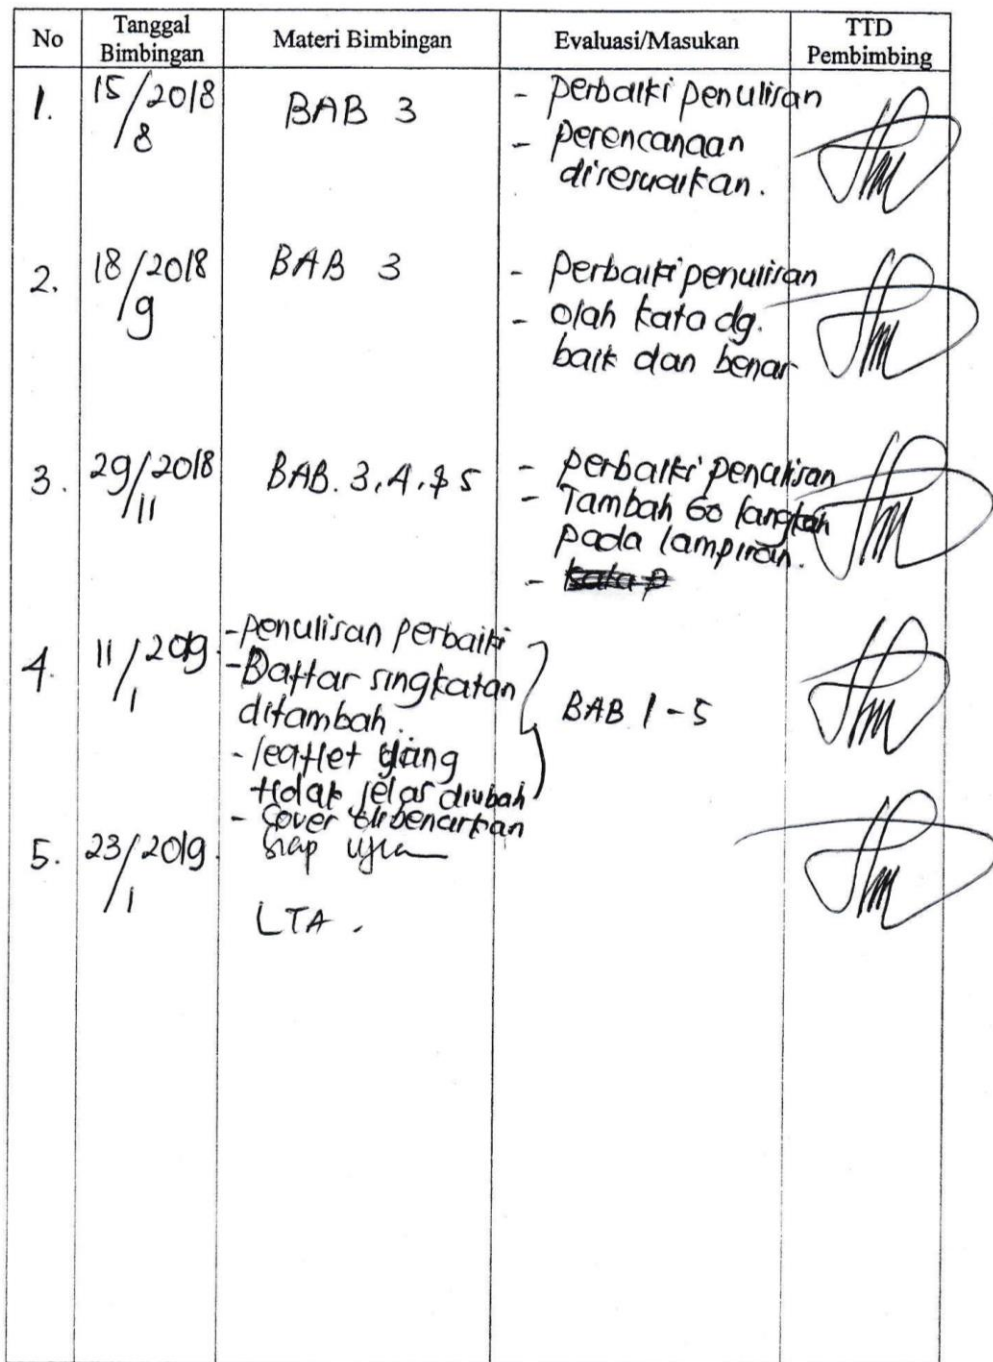 No Tanggal Bimbingan Materi Bimbingan Evaluasi/Masukan TTD Pembimbing
1. 15/2018 BAB 3 - perbaiki penulisan
/8 - perencanaan
disesuaikan.
2. 18/2018 BAB 3 - Perbaiki penulisan
/9 - olah kata dg.
baik dan benar
3. 29/2018 BAB. 3, 4, & 5 - perbaiki penulisan
/11 - Tambah 60 langkah
pada lampiran.
-
4. 11/2019. - penulisan perbaiki
/1 - Daftar singkatan BAB 1-5
ditambah.
- leaflet yang
tidak jelas diubah
- Cover dibenarkan
5. 23/2019. siap ujian
/1 LTA.